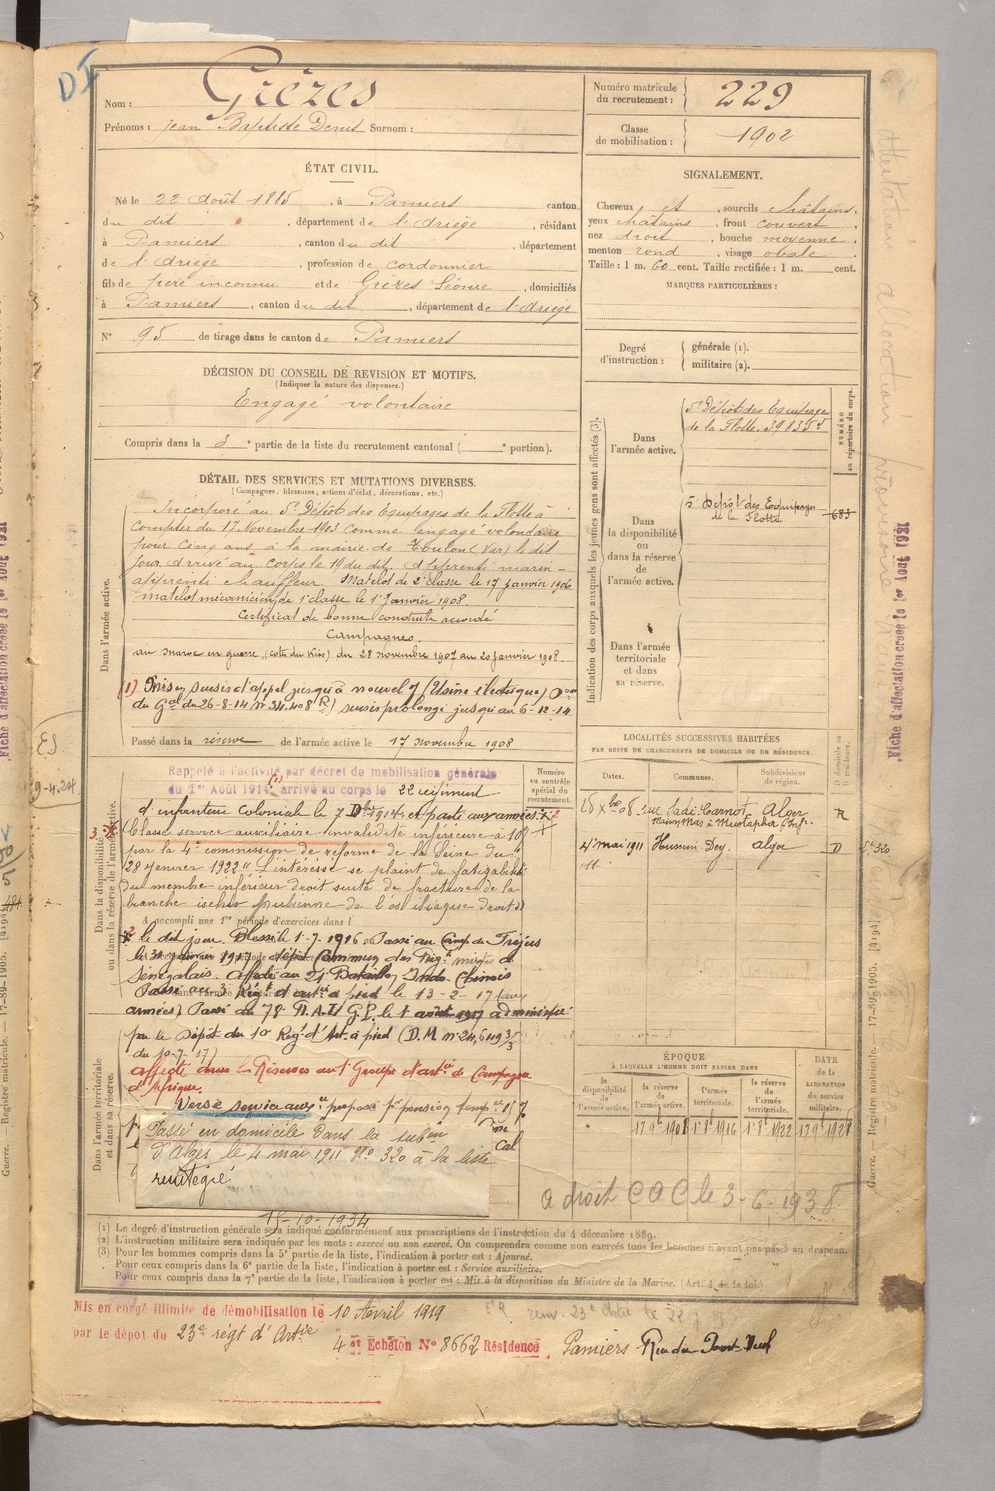 D I
Nom : Grèzes
Prénoms : Jean Baptiste Denis Surnom :
Numéro matricule du recrutement : 229
Classe de mobilisation : 1902
ÉTAT CIVIL.
Né le 22 août 1885, à Pamiers canton
du dit, département de l'Ariège, résidant
à Pamiers, canton du dit, département
de l'Ariège, profession de cordonnier
fils de père inconnu et de Grèzes Léonie, domiciliés
à Pamiers, canton du dit, département de l'Ariège
N° 95 de tirage dans le canton de Pamiers
SIGNALEMENT.
Cheveux et, sourcils châtains,
yeux châtains, front couvert,
nez droit, bouche moyenne,
menton rond, visage ovale.
Taille : 1 m. 60 cent. Taille rectifiée : 1 m. cent.
MARQUES PARTICULIÈRES :
Degré d'instruction : générale (1).
militaire (2).
DÉCISION DU CONSEIL DE REVISION ET MOTIFS.
(Indiquer la nature des dispenses.)
Engagé volontaire
Compris dans la 3e partie de la liste du recrutement cantonal ( e portion).
DÉTAIL DES SERVICES ET MUTATIONS DIVERSES.
(Campagnes, blessures, actions d'éclat, décorations, etc.)
Dans l'armée active.
Incorporé au 5e Dépôt des Équipages de la Flotte à
compter du 17 Novembre 1903 comme engagé volontaire
pour cinq ans à la mairie de Toulon (Var) le dit
jour. Arrivé au corps le 19 du dit. Apprenti marin
apprenti chauffeur Matelot de 2e classe le 17 janvier 1906
matelot mécanicien de 1e classe le 1er Janvier 1908.
Certificat de bonne conduite accordé
Campagnes.
au Maroc en guerre (côte du Kiss) du 28 novembre 1907 au 20 janvier 1908.
(1) Mis en sursis d'appel jusqu'à nouvel (Usine électrique)
du Gal du 26-8-14 n° 34.408 R) sursis prolongé jusqu'au 6-12-14
Passé dans la réserve de l'armée active le 17 novembre 1908
Indication des corps auxquels les jeunes gens sont affectés (3).
Dans l'armée active.
5e Dépôt des Équipages
de la Flotte. 39835
NUMÉRO au répertoire du corps.
Dans la disponibilité ou dans la réserve de l'armée active.
5e Dépôt des Equipages
de la Flotte 683
Dans l'armée territoriale et dans sa réserve.
LOCALITÉS SUCCESSIVES HABITÉES
PAR SUITE DE CHANGEMENTS DE DOMICILE OU DE RÉSIDENCE.
Dates. Communes. Subdivisions de région. D domicile ou R résidence.
Xbre 08 rue Sadi-Carnot, Alger R
à Mustapha
4 mai 1911 Hussein Dey. Alger D
Dans la disponibilité ou dans la réserve de l'armée active.
Numéro au contrôle spécial du recrutement.
Rappelé à l'activité par décret de mobilisation générale
du 1er Août 1914 (1) arrivé au corps le 22 régiment
d'infanterie coloniale le 7 Dbre 1914 et parti aux armées
Classé service auxiliaire invalidité inférieure à 10%
par la 4e commission de réforme de la Seine du
28 janvier 1922 "L'intéressé se plaint de fatigabilité
du membre inférieur droit suite de fracture de la
branche ischio pubienne de l'os iliaque droit"
A accompli une 1re période d'exercices dans l
le dit jour. Blessé le 1-7-1916 Passé au Camp de Fréjus
le 31 janvier 1917 dépôt Commun des Régts mixtes de
Sénégalais. Affecté au 21 Bataillon Indo-Chinois
Passé au 3 Régt d'artie à pied le 13-2-17 (aux
armées) Passé au 78 le 1 août 1917 administré
par le Dépôt du 10 Régt d'Art. à pied (D.M n° 246493/3
du 10-7-17)
affecté dans les Réserves au 1 Groupe d'artie de Campagne
d'Afrique.
Dans l'armée territoriale et dans sa réserve.
Versé service auxre proposé pr pension tempre
Passé en domicile dans la subon
d'Alger le 4 mai 1911 N° 320 à la liste
réintégré
15-10-1934
ÉPOQUE
À LAQUELLE L'HOMME DOIT PASSER DANS
la disponibilité de l'armée active. la réserve de l'armée active. l'armée territoriale. la réserve de l'armée territoriale.
DATE de la LIBÉRATION du service militaire.
17 9b 1908 1 8b 1916 1 8b 1922 17 9b 1928
a droit C A C le 3-6-1938
(1) Le degré d'instruction générale sera indiqué conformément aux prescriptions de l'instruction du 4 décembre 1889.
(2) L'instruction militaire sera indiquée par les mots : exercé ou non exercé. On comprendra comme non exercés tous les hommes n'ayant pas passé au drapeau.
(3) Pour les hommes compris dans la 5e partie de la liste, l'indication à porter est : Ajourné.
Pour ceux compris dans la 6e partie de la liste, l'indication à porter est : Service auxiliaire.
Pour ceux compris dans la 7e partie de la liste, l'indication à porter est : Mis à la disposition du Ministre de la Marine. (Art. 4 de la loi)
Mis en congé illimité de démobilisation le 10 Avril 1919
par le dépôt du 23e régt d'Artie
4 et Echelon N° 8662 Résidence Pamiers Rue du Pont-Neuf
Fiche d'affectation créée le 1er Août 1921
Guerre. — Registre matricule. — 17-89-1905. [4194]
E.S.
9-4.24.